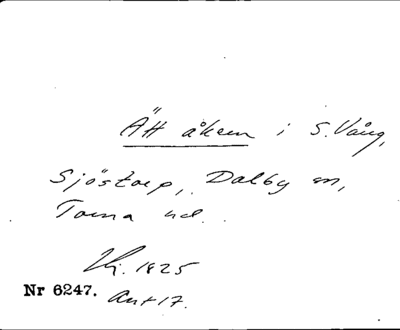 Ätt åkern i S. Vång,
Sjöstorp, Dalby sn,
Torna hd.
1825
Nr 6247. Ant 17.